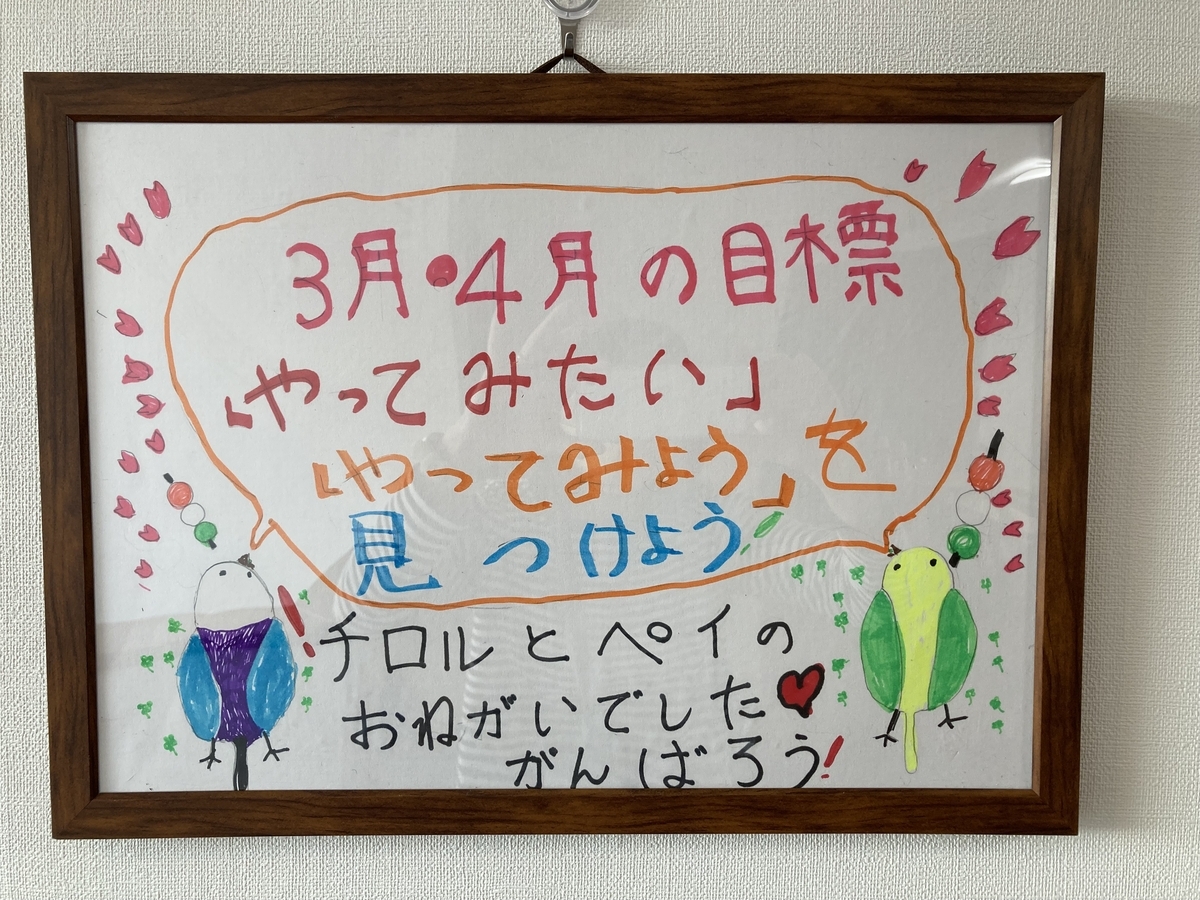 3月・4月の目標
「やってみたい」
「やってみよう」を
見つけよう!
チロルとペイの
おねがいでした
がんばろう!